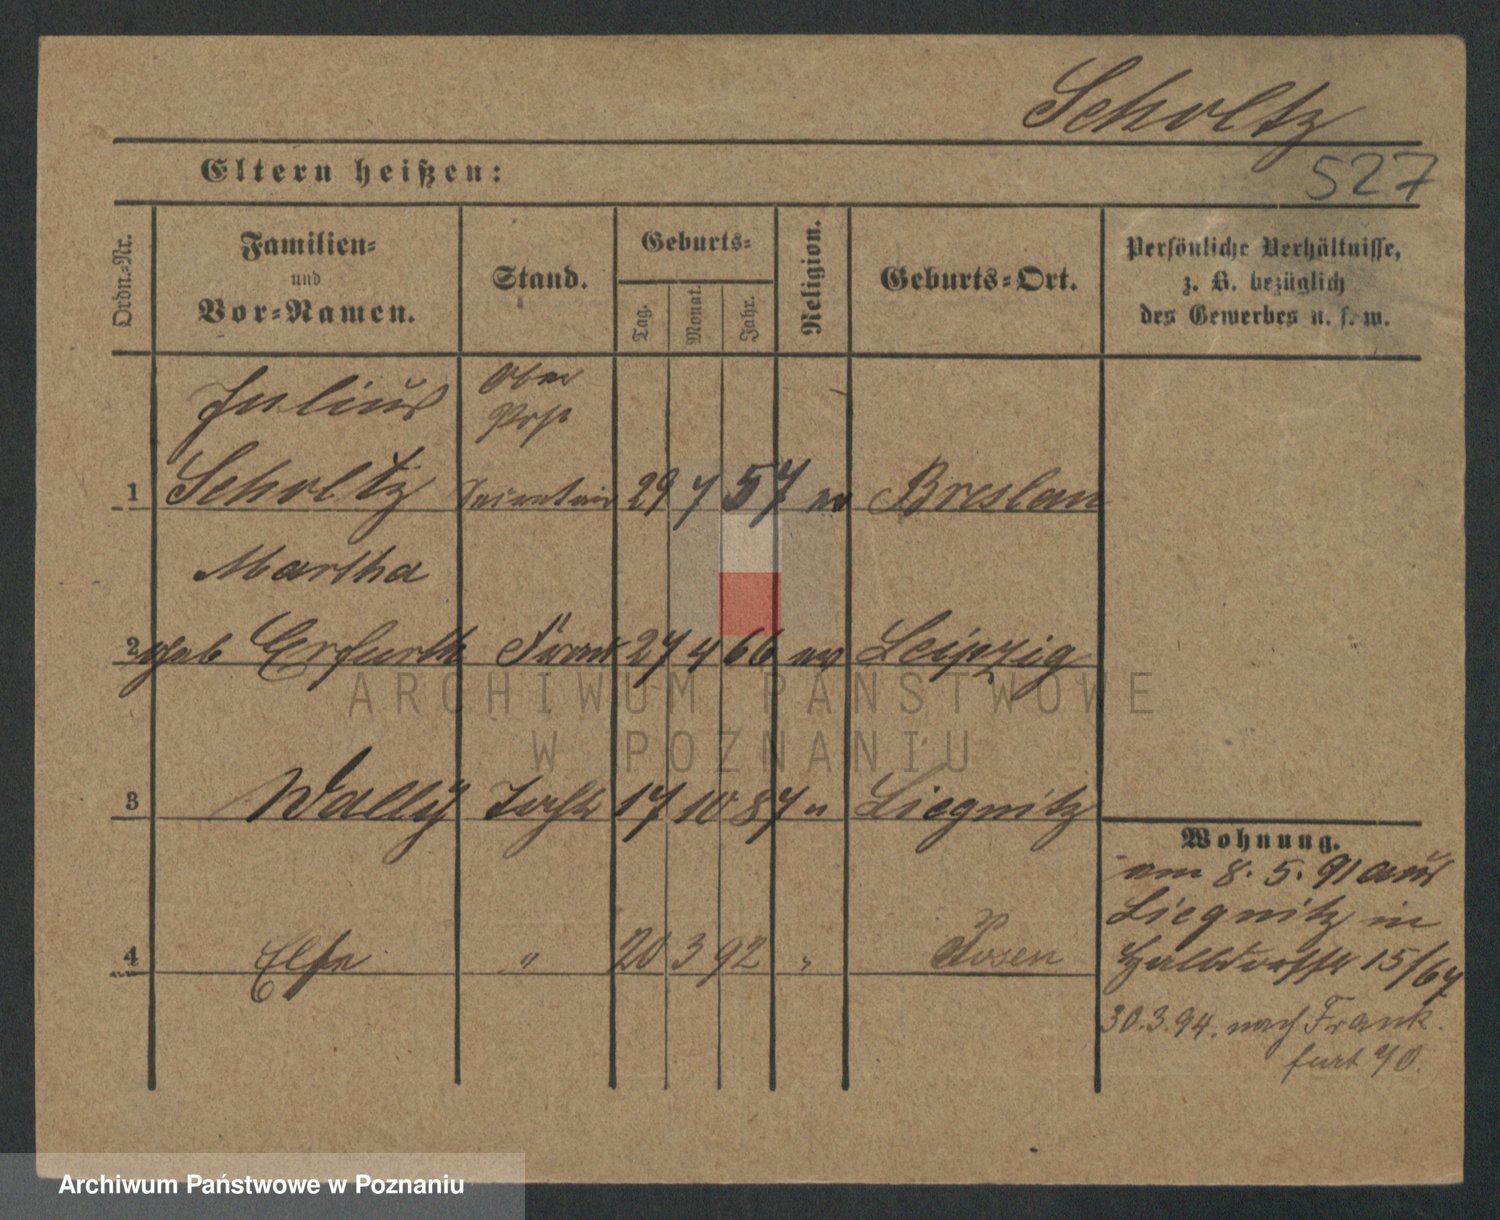 Scholtz
Eltern heißen:
527
Ordn.-Nr.
Familien-
und
Vor-Namen.
Stand.
Geburts-
Tag.
Monat.
Jahr.
Religion.
Geburts-Ort.
Persönliche Verhältnisse,
z. B. bezüglich
des Gewerbes u. s. w.
Julius Ober
Post
1 Scholtz Secretair 29 7 57 ev Breslau
Martha
2 geb Erfurth Frau 27 4 66 ev Leipzig
ARCHIWUM PAŃSTWOWE
W POZNANIU
3 Wally Tocht 17 10 87 " Liegnitz
Wohnung.
am 8. 5. 91 aus
Liegnitz in
4 Else " 20 3 92 " Posen
Halbdorfstr 15/67
30.3.94. nach Frank-
furt a/O.
Archiwum Państwowe w Poznaniu